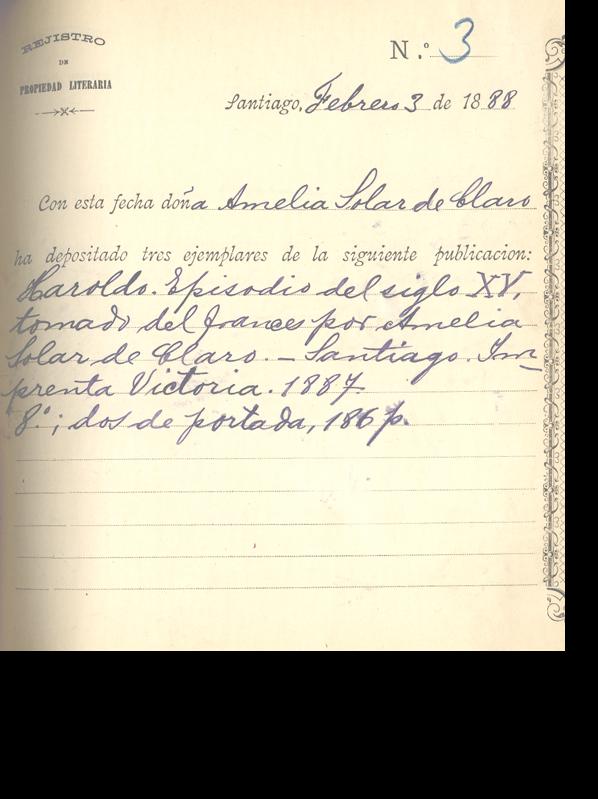 REJISTRO
DE
PROPIEDAD LITERARIA
N.º 3
Santiago, Febrero 3 de 1888
Con esta fecha doña Amelia Solar de Claro
ha depositado tres ejemplares de la siguiente publicacion:
Haroldo. Episodio del siglo XV,
tomado del frances por Amelia
Solar de Claro. – Santiago. Im-
prenta Victoria. 1887.
8.º; dos de portada, 186 p.